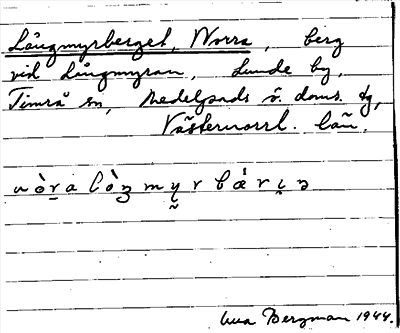 Långmyrberget, Norra, berg
vid Långmyran, Lunde by,
Timrå sn, Medelpads ö. doms. dg,
Västernorrl. län.
nòra lòŋ my̨r bǽr ı̨ə
Bergman 1944.